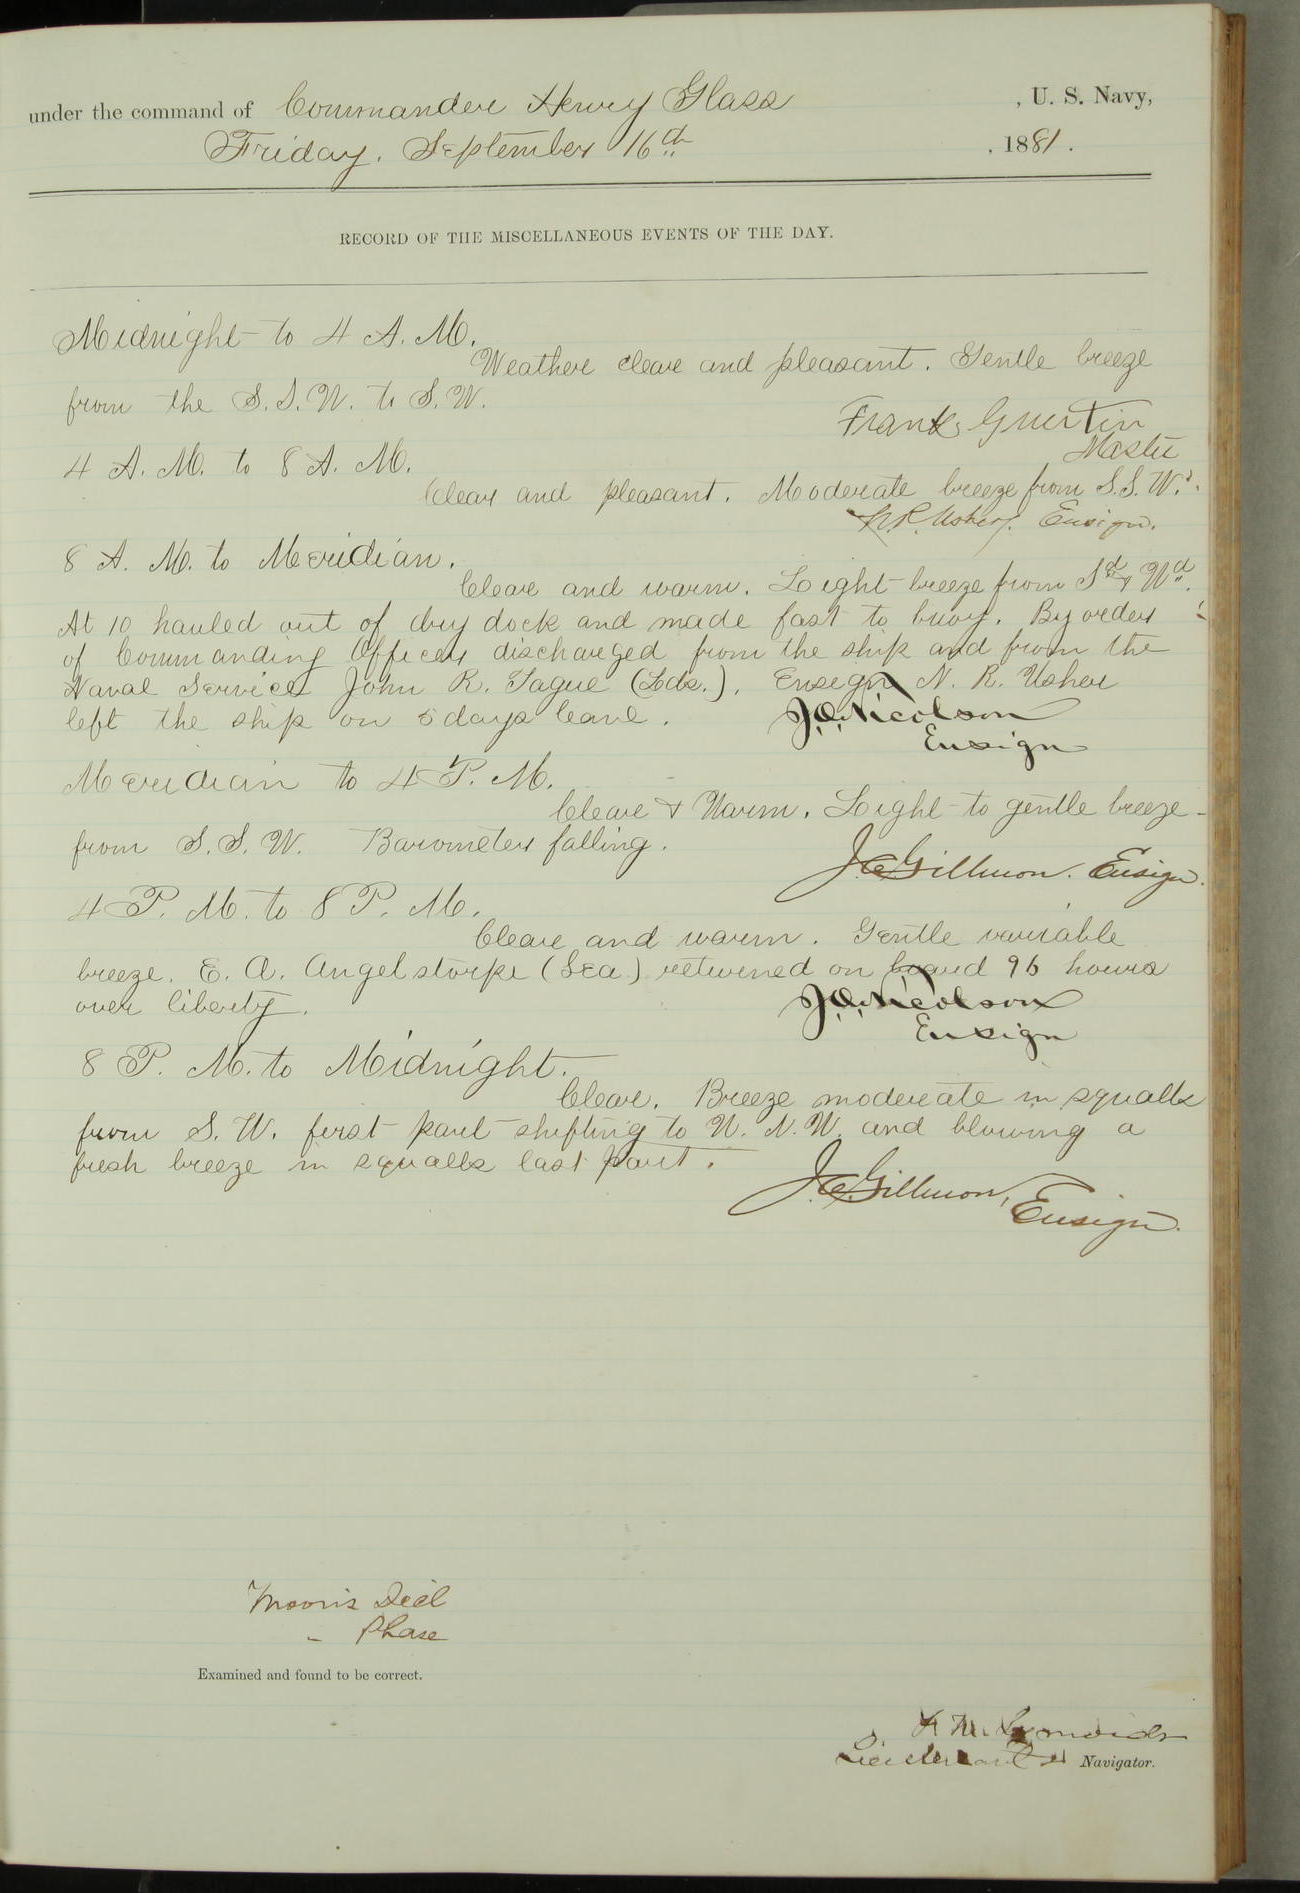 under the command of Commander Henry Glass , U. S. Navy,
Friday, September 16th , 1881.
RECORD OF THE MISCELLANEOUS EVENTS OF THE DAY.
Midnight to 4 A. M.
Weather clear and pleasant. Gentle breeze
from the S. S. W. to S. W.
Frank Guertin
Master
4 A. M. to 8 A. M.
Clear and pleasant. Moderate breeze from S. S. W.
N. R. Usher. Ensign.
8 A. M. to Meridian.
Clear and warm. Light breeze from Sd & Wd.
At 10 hauled out of dry dock and made fast to buoy. By order
of Commanding Officer discharged from the ship and from the
Naval Service John R. Tague (Lds.). Ensign N. R. Usher
left the ship on 5 days leave.
J. O. Nicolson
Ensign
Meridian to 4 P. M.
Clear & Warm. Light to gentle breeze
from S. S. W. Barometer falling.
J. C. Gillmor. Ensign.
4 P. M. to 8 P. M.
Clear and warm. Gentle variable
breeze. E. A. Angelstorpe (Sea) returned on board 96 hours
over liberty.
J. O. Nicolson
Ensign
8 P. M. to Midnight.
Clear. Breeze moderate in squalls
from S. W. first part shifting to N. N. W. and blowing a
fresh breeze in squalls last part.
J. C. Gillmor, Ensign.
Phase
Examined and found to be correct.
Lieutenant Navigator.